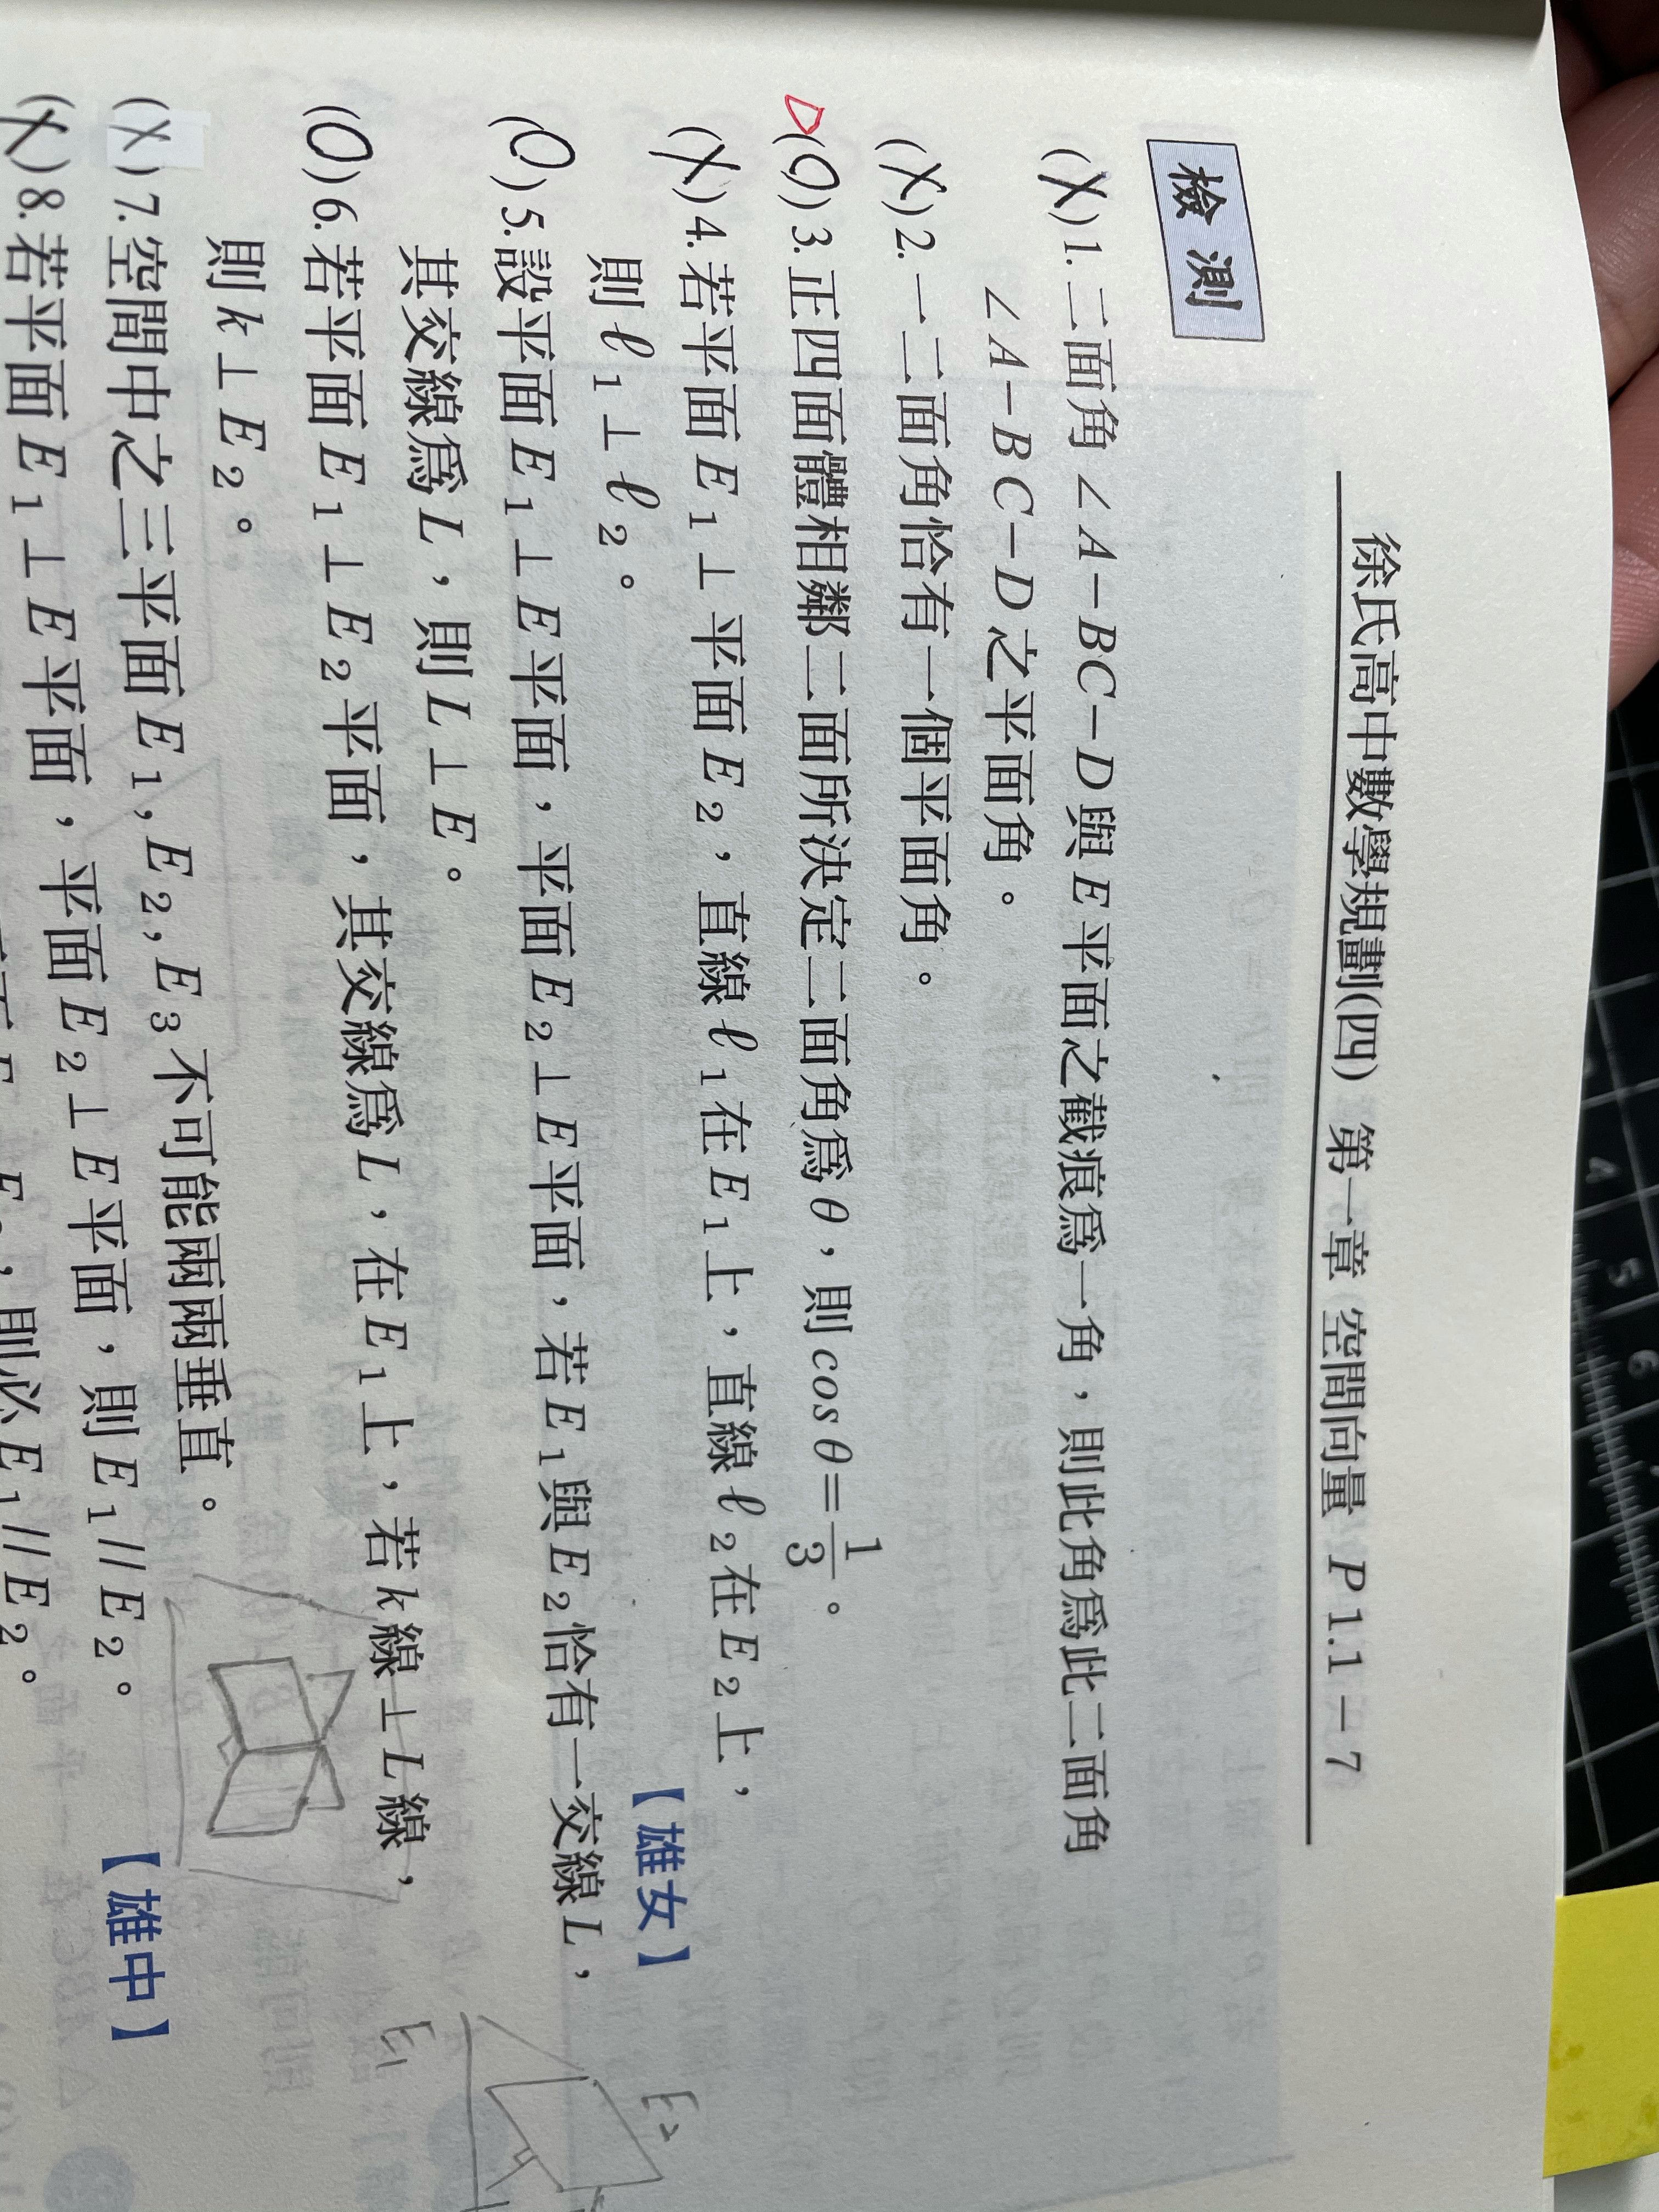 徐氏高中數學規劃(四) 第一章 空間向量 P 1.1 − 7
檢測
(X)1.二面角∠A−BC−D與E平面之截痕爲一角，則此角爲此二面角
∠A−BC−D之平面角。
(X)2.一二面角恰有一個平面角。
(O)3.正四面體相鄰二面所決定二面角爲θ，則cosθ=1/3。
(X)4.若平面E₁⊥平面E₂，直線ℓ₁在E₁上，直線ℓ₂在E₂上，
則ℓ₁⊥ℓ₂。 【雄女】
(O)5.設平面E₁⊥E平面，平面E₂⊥E平面，若E₁與E₂恰有一交線L，
其交線爲L，則L⊥E。
(O)6.若平面E₁⊥E₂平面，其交線爲L，在E₁上，若k線⊥L線，
則k⊥E₂。
(X)7.空間中之三平面E₁,E₂,E₃不可能兩兩垂直。 【雄中】
(X)8.若平面E₁⊥E平面，平面E₂⊥E平面，則E₁//E₂。
，則必E₁//E₂。
E₁
E₂